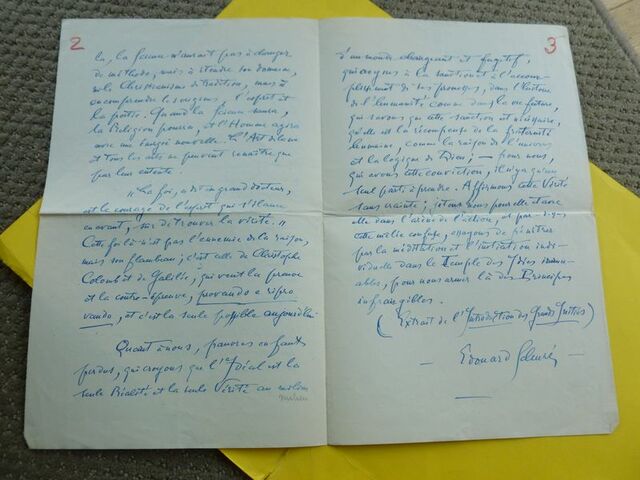 2
là, la science n'aurait pas à changer
de méthode, mais à étendre son domaine,
ni le Christianisme de tradition, mais à
en comprendre les origines, l'esprit et
la portée. Quand la Science saura,
la Religion pourra, et l'Homme agira
avec une énergie nouvelle. L'Art de la vie
et tous les arts ne peuvent renaître que
par leur entente.
« La foi, a dit un grand docteur,
est le courage de l'esprit qui s'élance
en avant, sûr de trouver la vérité. »
Cette foi là n'est pas l'ennemie de la raison,
mais son flambeau ; c'est celle de Christophe
Colomb et de Galilée, qui veut la preuve
et la contre-épreuve, provando e ripro
vando, et c'est la seule possible aujourd'hui.
Quant à nous, pauvres enfants
perdus, qui croyons que l'Idéal est la
seule Réalité et la seule Vérité au milieu
milieu
3
d'un monde changeant et fugitif,
qui croyons à la sanction et à l'accom-
plissement de ses promesses, dans l'histoire
de l'humanité comme dans la vie future,
qui savons que cette sanction est nécessaire,
qu'elle est la récompense de la fraternité
humaine, comme la raison de l'univers
et la logique de Dieu ; — pour nous,
qui avons cette conviction, il n'y a qu'un
seul parti à prendre. Affirmons cette Vérité
sans crainte ; jetons nous pour elle et avec
elle dans l'arène de l'action, et par-dessus
cette mêlée confuse, essayons de pénétrer
par la méditation et l'initiation indi-
viduelle dans le Temple des Idées immu-
ables, pour nous armer là des Principes
infrangibles.
( Extrait de l'Introduction des Grands Initiés )
— Edouard Schuré —